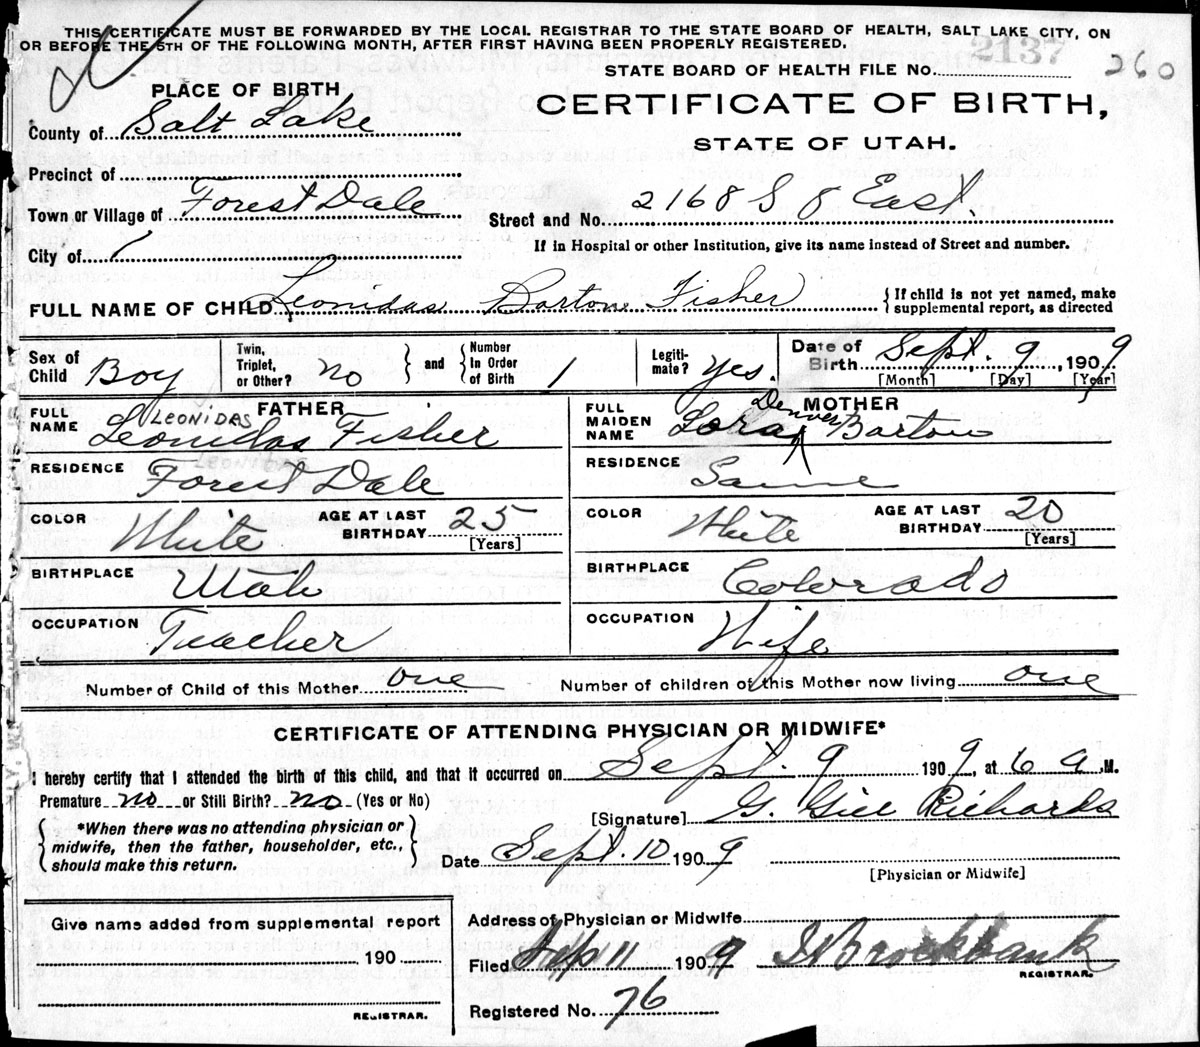 THIS CERTIFICATE MUST BE FORWARDED BY THE LOCAL REGISTRAR TO THE STATE BOARD OF HEALTH, SALT LAKE CITY, ON
OR BEFORE THE 5TH OF THE FOLLOWING MONTH, AFTER FIRST HAVING BEEN PROPERLY REGISTERED.
STATE BOARD OF HEALTH FILE NO. 2137 260
PLACE OF BIRTH
CERTIFICATE OF BIRTH,
County of Salt Lake
STATE OF UTAH.
Precinct of
Town or Village of Forest Dale
Street and No. 2168 S 8 East.
City of
If in Hospital or other Institution, give its name instead of Street and number.
FULL NAME OF CHILD Leonidas Barton Fisher { If child is not yet named, make supplemental report, as directed
Sex of Child Boy
Twin, Triplet, or Other? no } and { Number In Order of Birth 1
Legitimate? Yes.
Date of Birth Sept. 9, 1909
[Month] [Day] [Year]
FATHER
FULL NAME LEONIDAS
Leonidas Fisher
MOTHER
FULL MAIDEN NAME Lora Denver Barton
RESIDENCE Forest Dale
RESIDENCE Same
COLOR White AGE AT LAST BIRTHDAY 25 [Years]
COLOR White AGE AT LAST BIRTHDAY 20 [Years]
BIRTHPLACE Utah
BIRTHPLACE Colorado
OCCUPATION Teacher
OCCUPATION Wife
Number of Child of this Mother one Number of children of this Mother now living one
CERTIFICATE OF ATTENDING PHYSICIAN OR MIDWIFE*
I hereby certify that I attended the birth of this child, and that it occurred on Sept. 9 1909, at 6 a .M.
Premature no or Still Birth? no (Yes or No)
[Signature] G. Gill Richards
*When there was no attending physician or
midwife, then the father, householder, etc.,
should make this return.
Date Sept. 10 1909
[Physician or Midwife]
Give name added from supplemental report
190
REGISTRAR.
Address of Physician or Midwife
Filed 11 1909 Brockbank
REGISTRAR.
Registered No. 76